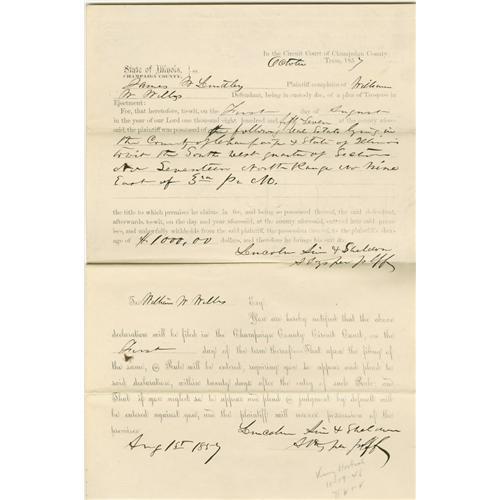 In the Circuit Court of Champaign County.
October Term, 1857
State of Illinois, } ss.
CHAMPAIGN COUNTY,
James W Lindley Plaintiff complains of William
W Willis Defendant, being in custody, &c., of a plea of Trespass in
Ejectment:
For, that heretofore, to-wit, on the First day of August
in the year of our Lord one thousand eight hundred and fifty Seven at the county afore-
said, the plaintiff was possessed of the following real Estate lying in
the County of Champaign & State of Illinois
to wit the South west quarter of Section
No Seventeen North Range No Nine
East of 3rd P. M.
the title to which premises he claims in fee, and being so possessed thereof, the said defendant,
afterwards, to-wit, on the day and year aforesaid, at the county aforesaid, entered into said prem-
ises, and unlawfully withholds from the said plaintiff, the possession thereof, to the plaintiff's dam-
age of $1000,00 dollars, and therefore he brings his suit &c.
Lincoln Sim & Sheldon
Attys for plff
To William W Willis Esq.
You are hereby notified that the above
declaration will be filed in the Champaign County Circuit Court, on the
First day of the term thereof: That upon the filing of
the same, a Rule will be entered, requiring you to appear and plead to
said declaration, within twenty days after the entry of such Rule: And
That if you neglect so to appear and plead a judgment by default will
be entered against you, and the plaintiff will recover possession of the
premises.
Lincoln Sim & Sheldon
Attys for plff
Aug 1st 1857